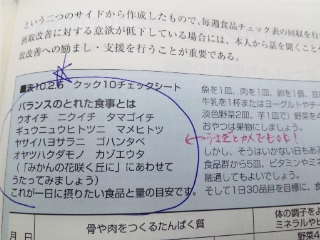 という二つのサイドから作成したもので、毎週食品チェック表の回収を行
摂取改善に対する意欲が低下している場合には、本人から話を聞くことや
改善への励まし・支援を行うことが重要である。
表10.2.6 クック10チェックシート
バランスのとれた食事とは
ウオイチ ニクイチ タマゴイチ
ギュウニュウヒトツニ マメヒトツ
ヤサイハヨサラニ ゴハンタベ
オヤツハクダモノ カゾエウタ
(「みかんの花咲く丘に」にあわせて
うたってみましょう)
これが一日に摂りたい食品と量の目安です。
魚を1皿、肉を1皿、卵を1個、豆
牛乳を1杯またはヨーグルトやチー
淡色野菜2皿、芋1皿)で野菜を4
おやつは果物にしましょう。
しかし、そうはいかない日もあ
食品群から5皿、ビタミンやミネ
融通してもよいでしょう。
そして1日30品目を目標に、食
月 日
骨や肉をつくるたんぱく質
体の調子をよ
ミネラルやビ
野菜4